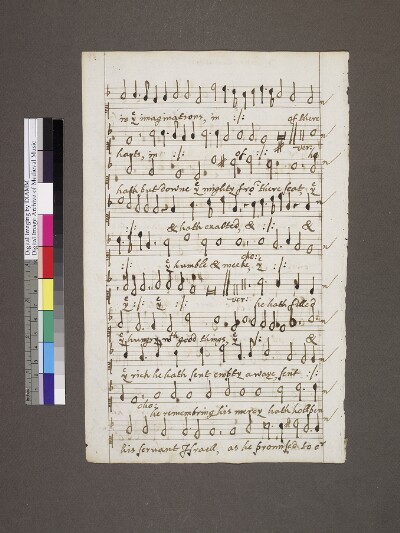 in yͤ imaginations, in :/: of there
harts, in :/: of :/: ver: he
hath but downe yͤ mighty fro̅ there seat, yͤ
:/: & hath exalted, & :/: &
:/: yͤ humble & meeke, cho: yͤ :/:
yͤ :/: yͤ :/: ver: he hath filled
yͤ hungry wᵗʰ good things, yͤ :/: &
yͤ rich he hath sent empty awaye, sent :/:
cho: he remembring his mercy hath holpen
his servant Israel, as he promised to oʳ
Digital Imaging by DIAMM
Digital Image Archive of Medieval Music